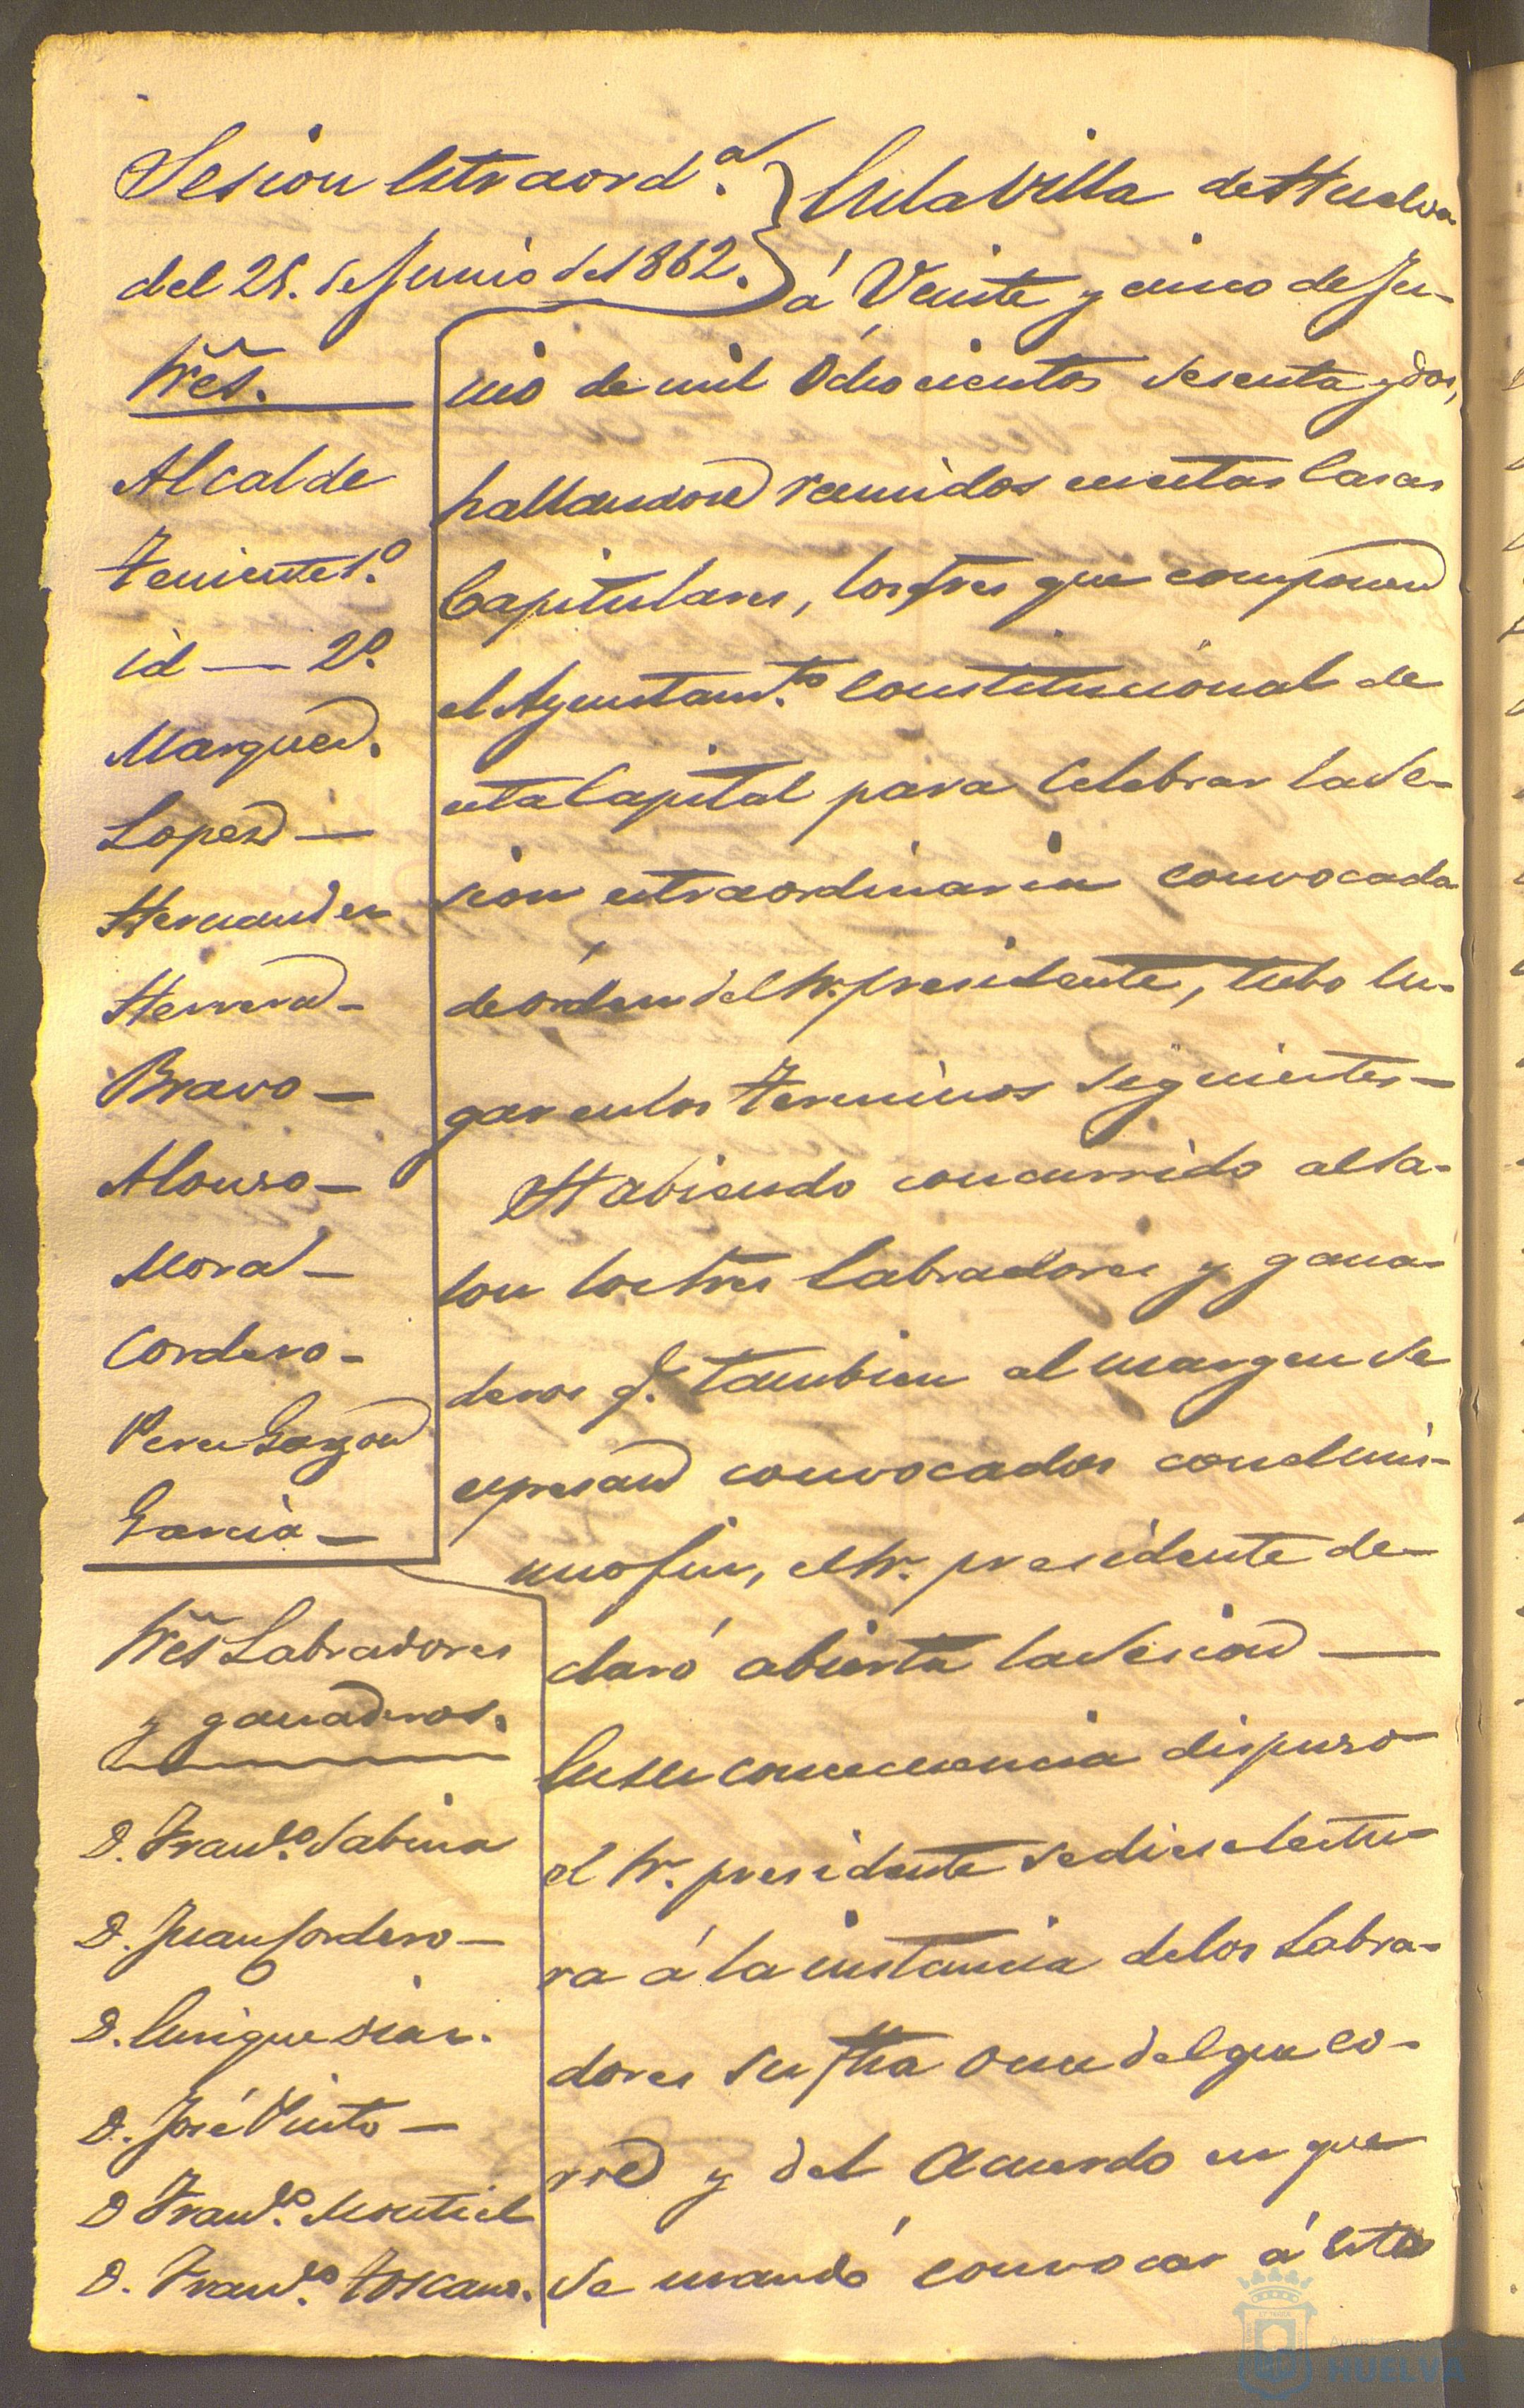 Sesion Extraord.ª
del 25. de Junio de 1862.
Sres.
Alcalde
Teniente 1.º
id — 2º.
Marquez.
Lopez —
Hernandez
Herrera —
Bravo —
Alonso —
Mora —
Cordero —
Perez Garzon
Garcia —
Sres Labradores
y ganaderos.
D. Franco. Sabina
D. Juan Cordero —
D. Enrique Diaz.
D. José Pinto —
D Franco. Montiel
D. Franco. Toscano.
En la Villa de Huelva
á Veinte y cinco de Ju-
nio de mil Ochocientos sesenta y dos,
hallandose reunidos en estas Casas
Capitulares, los Sres que componen
el Ayuntamto. Constitucional de
esta Capital para Celebrar la Se-
sion estraordinaria convocada
de órden del Sr. presidente, tubo lu-
gar en los terminos siguientes —
Habiendo concurrido al Sa-
lon los Sres Labradores y gana-
deros q. tambien al margen se
espresan convocados con el mis-
mo fin, el Sr. presidente de-
claró abierta la Sesion —
En su consecuencia dispuso
el Sr. presidente se diese lectu-
ra á la instancia de los Labra-
dores su fha once del que co-
rre y del Acuerdo en que
se mandó convocar á estos
HUELVA